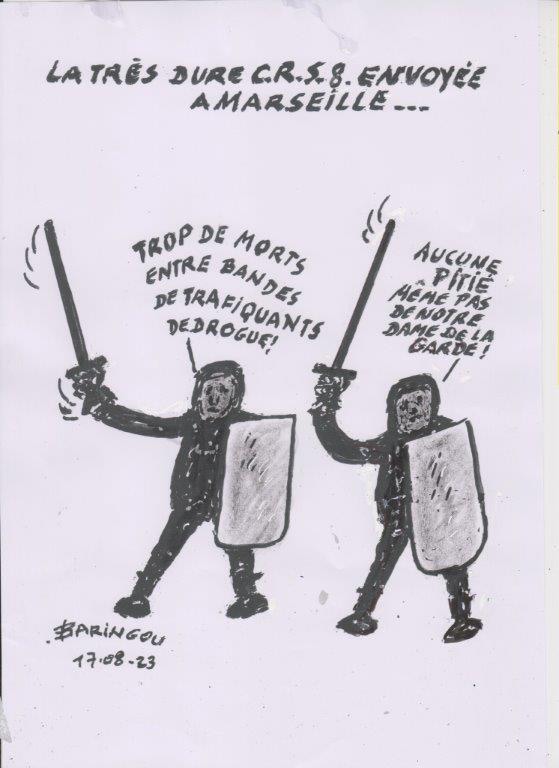 LA TRÈS DURE C.R.S.8. ENVOYÉE
A MARSEILLE...
TROP DE MORTS
ENTRE BANDES
DE TRAFIQUANTS
DE DROGUE!
AUCUNE
PITIÉ
MÊME PAS
DE NOTRE
DAME DE LA
GARDE!
BARINGOU
17.08-23